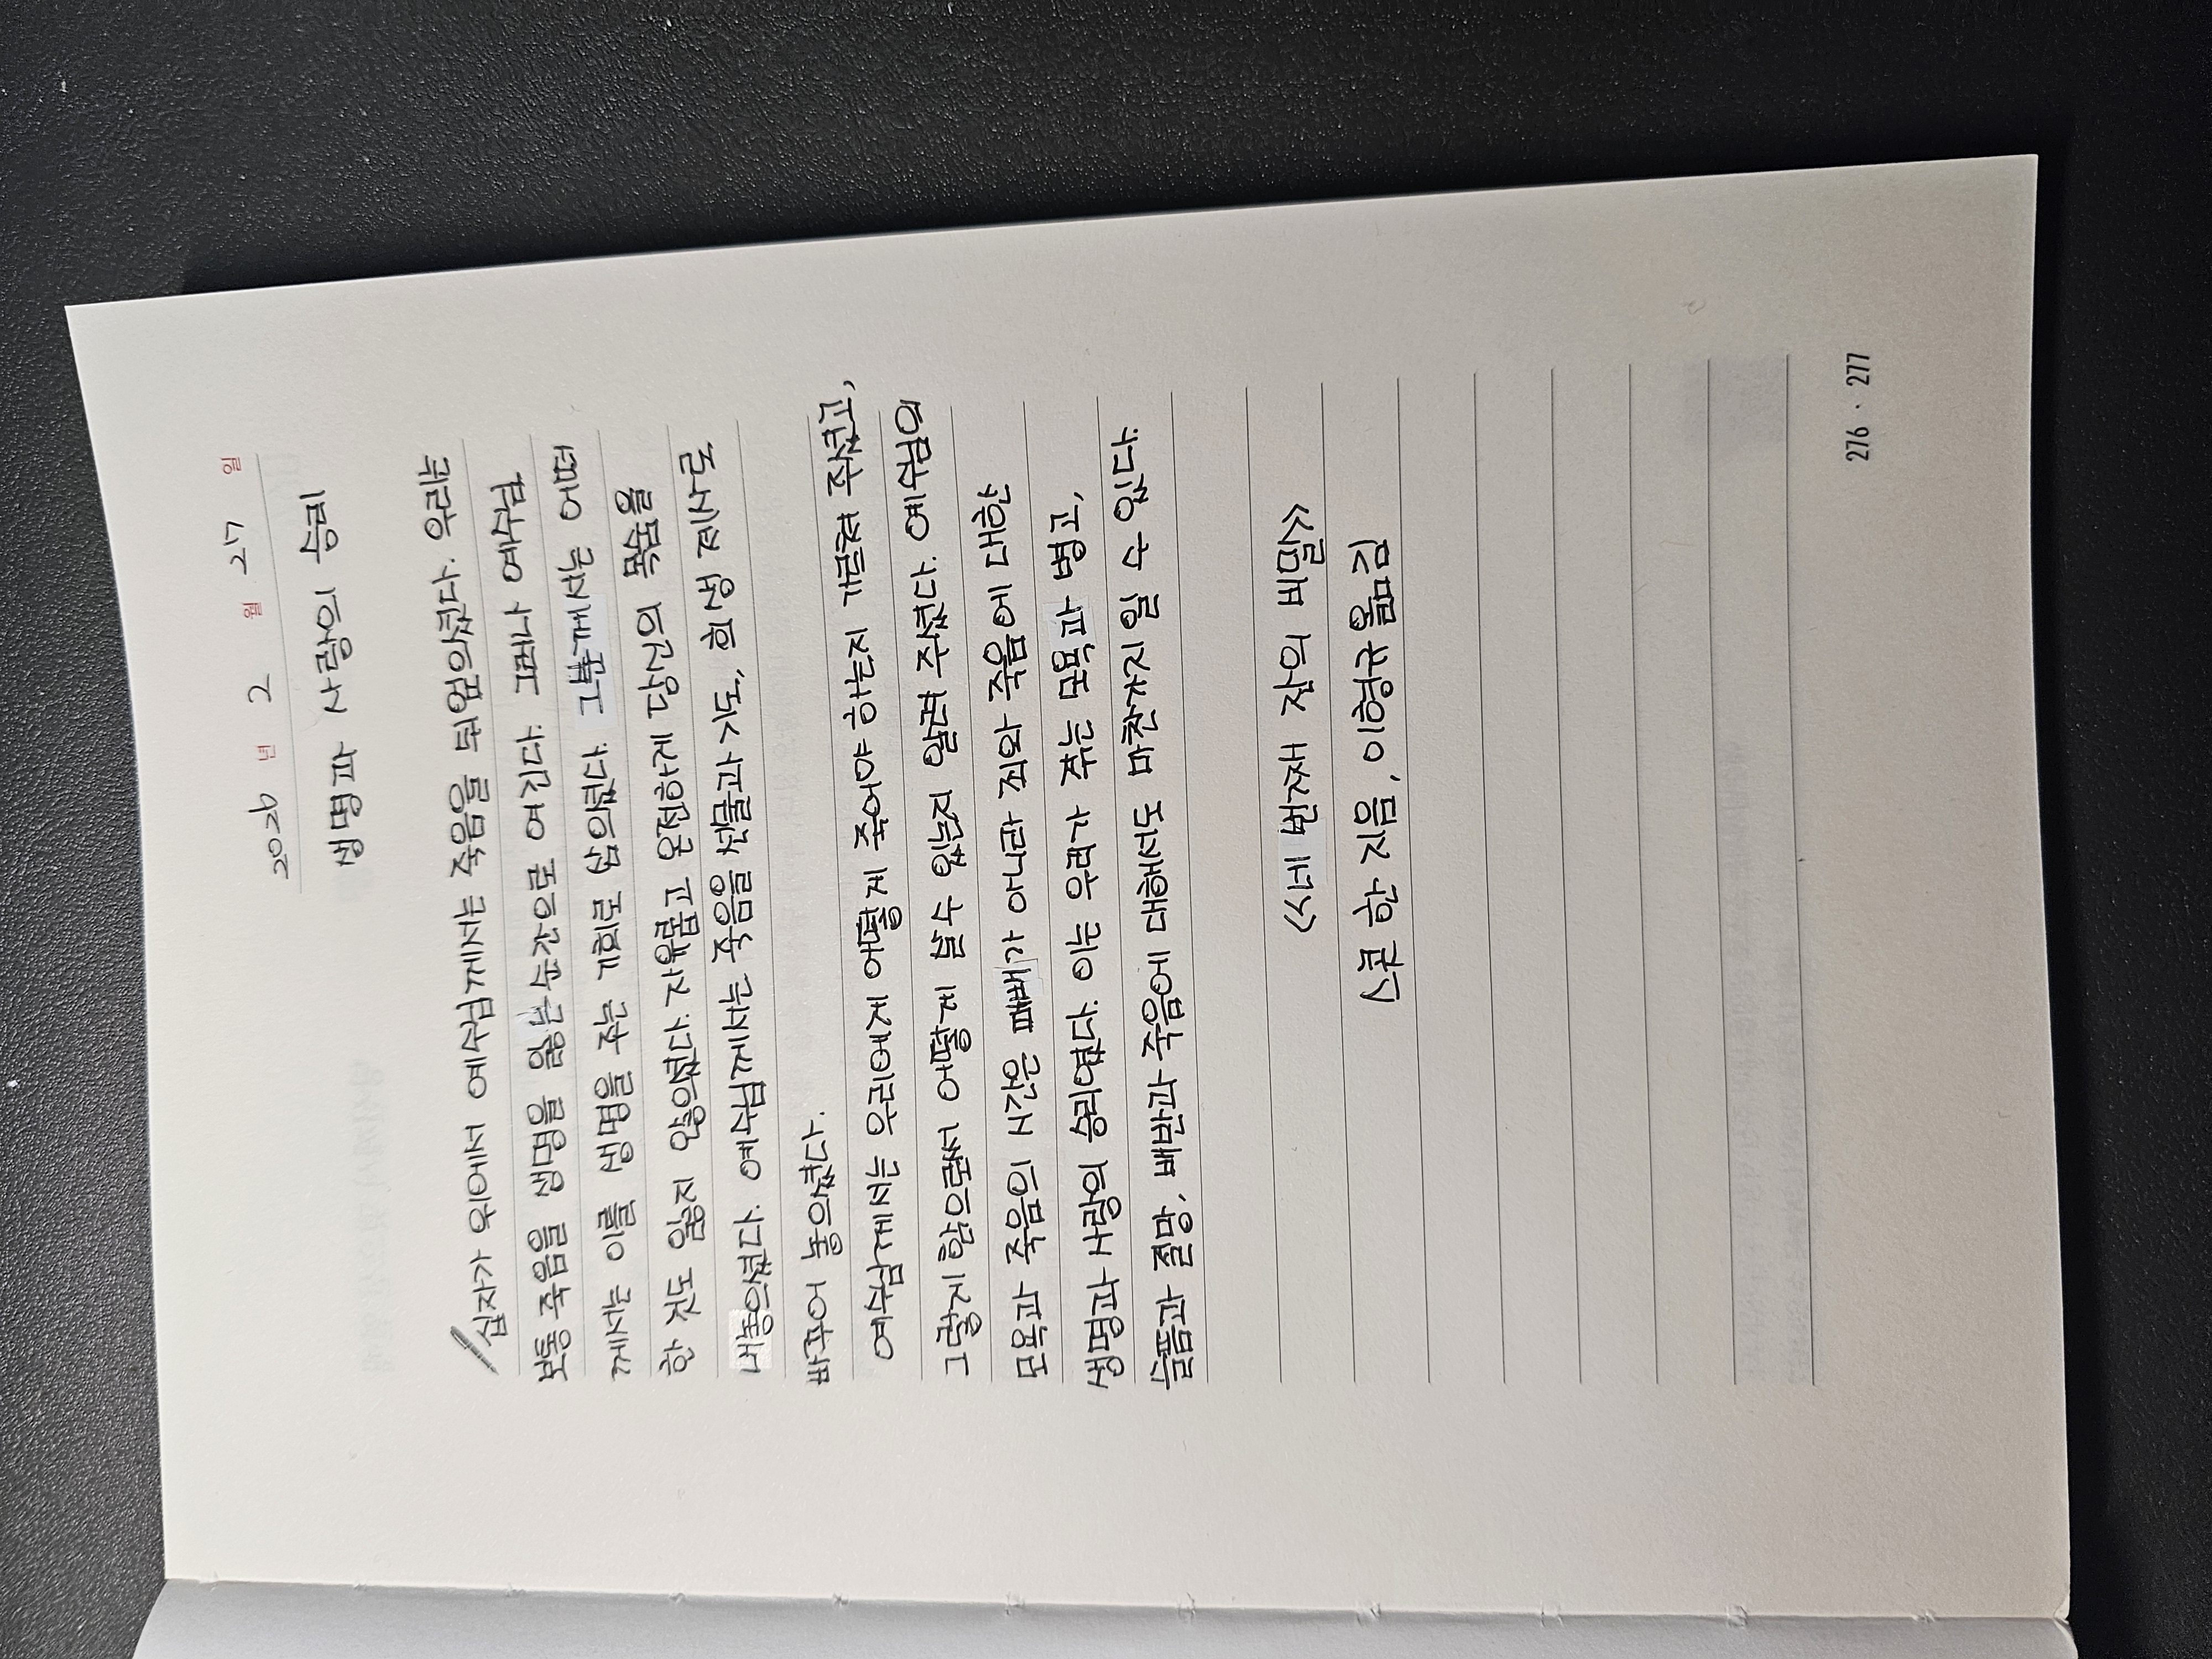 2026 년 2 월 27 일
생명과 사랑의 승리
십자가 위에서 예수님께서는 죽음을 뒤엎으셨다. 우리는
보통 죽음을 생명을 잃는 순간으로 여긴다. 그러나 예수님
께서는 이를 생명을 주는 기회로 삼으셨다. 그분께서는 어떠
한 것도 잃지 않으셨다. 자유롭고 온전하게 당신의 목숨을
내놓으셨다. 예수님께서는 죽음을 선물과 기도, 희생 제사로
바꾸어 놓으셨다.
예수님께서는 우리에게 어떻게 죽어야 하는지 가르쳐 주셨고,
그렇게 함으로써 어떻게 살 수 있는지 알려 주셨다. 예수님의
모욕과 죽음의 시간은 패배가 아니라 죄와 죽음에 대한
생명과 사랑의 승리였다. 이는 우리가 겪는 모욕과 병고,
슬픔과 절망, 배반과 죽음에 대해서도 마찬가지일 수 있다.
《네 번째 잔의 비밀》
스콧 한 지음, 이형규 옮김
276 · 277